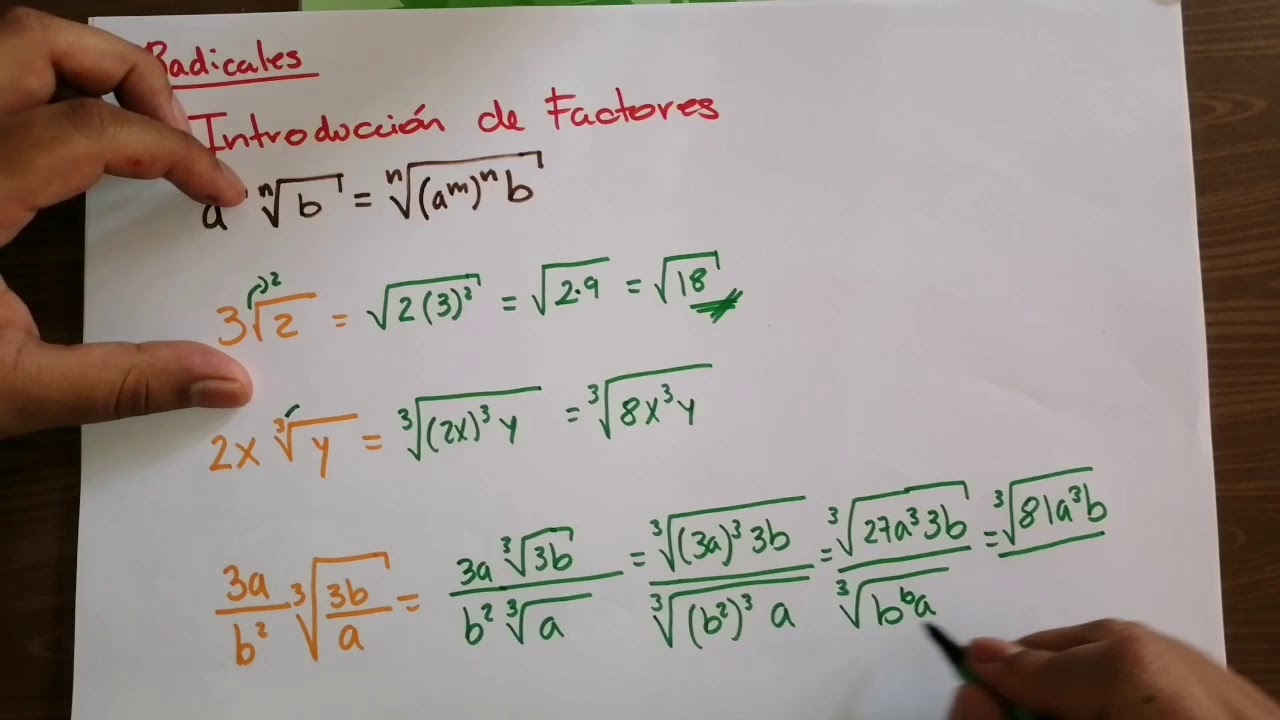 Radicales
Introducción de Factores
a ⁿ√b = ⁿ√((aᵐ)ⁿ b)
3√2 ⁾² = √(2(3)²) = √(2·9) = √18
2x ³√y = ³√((2x)³ y) = ³√(8x³y)
3a/b² ³√(3b/a) = (3a ³√(3b))/(b² ³√a) = ³√((3a)³ 3b)/³√((b²)³ a) = ³√(27a³3b)/³√(b⁶a) = ³√(81a³b)